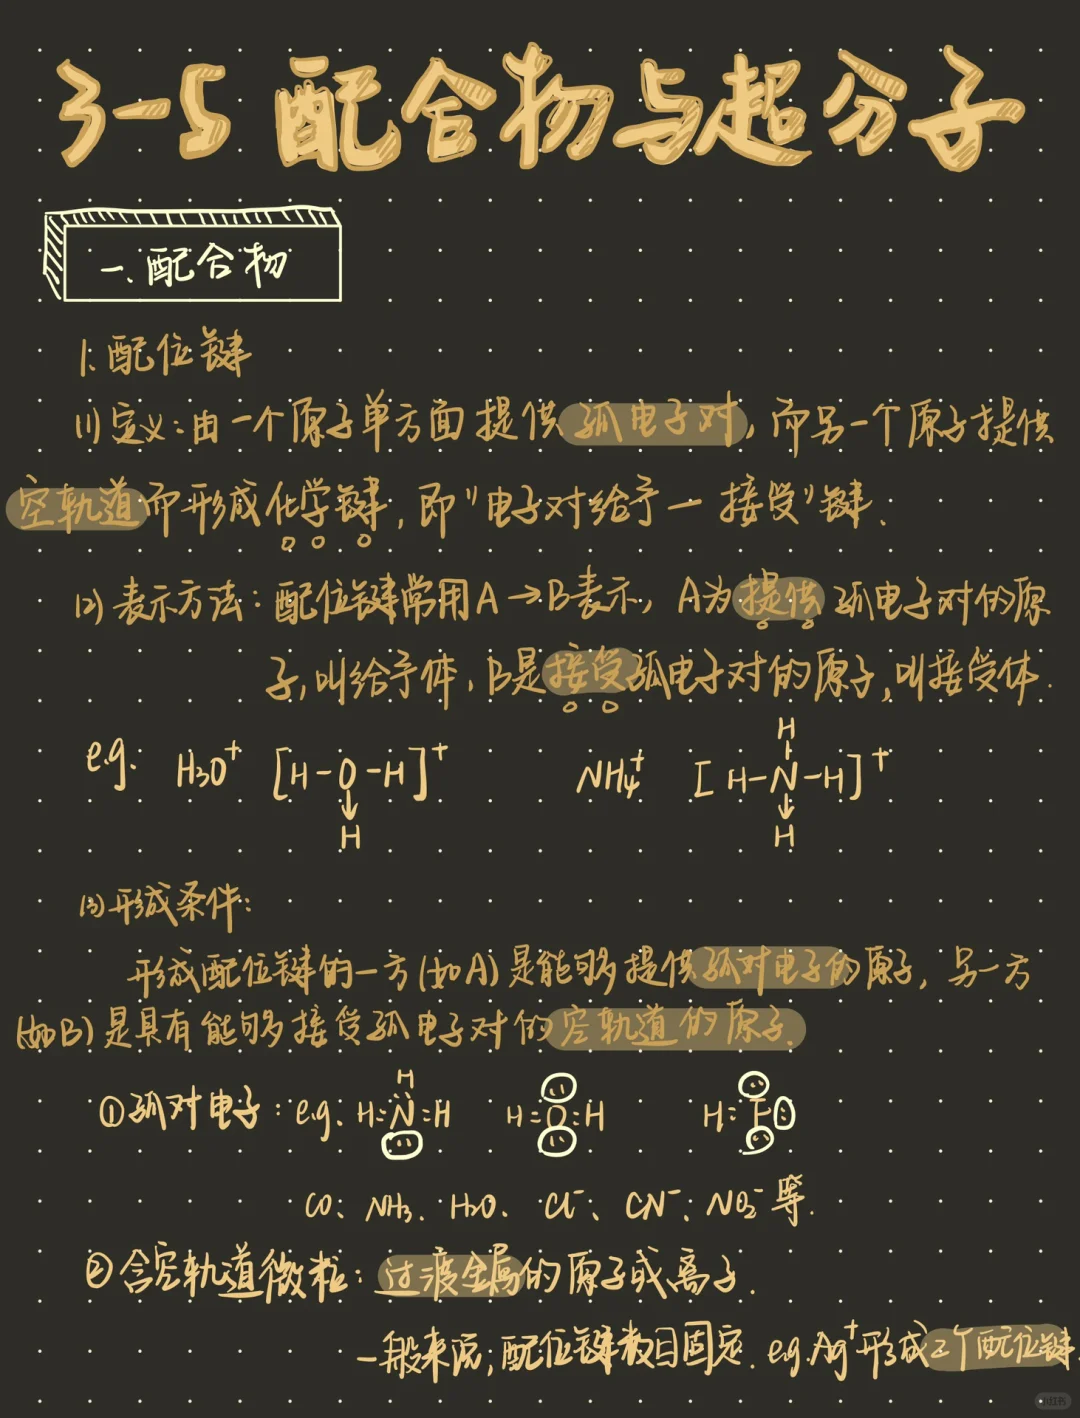 3-5 配合物与超分子
一、配合物
1. 配位键
(1) 定义：由一个原子单方面提供孤电子对，而另一个原子提供
空轨道而形成化学键，即"电子对给予一接受"键、
(2) 表示方法：配位键常用A→B表示，A为提供孤电子对的原
子，叫给予体，B是接受孤电子对的原子，叫接受体.
e.g. H3O+ [H-O-H]+ NH4+ [H-N-H]+
H
H
H
(3) 形成条件：
形成配位键的一方(如A)是能够提供孤对电子的原子，另一方
(如B)是具有能够接受孤电子对的空轨道的原子.
①孤对电子：e.g. H:N:H H:O:H H:F:
H
CO、NH3、H2O、Cl-、CN-、NO2-等.
②含空轨道微粒：过渡金属的原子或离子.
一般来说；配位键数目固定. e.g. Ag+形成2个配位键.
小红书